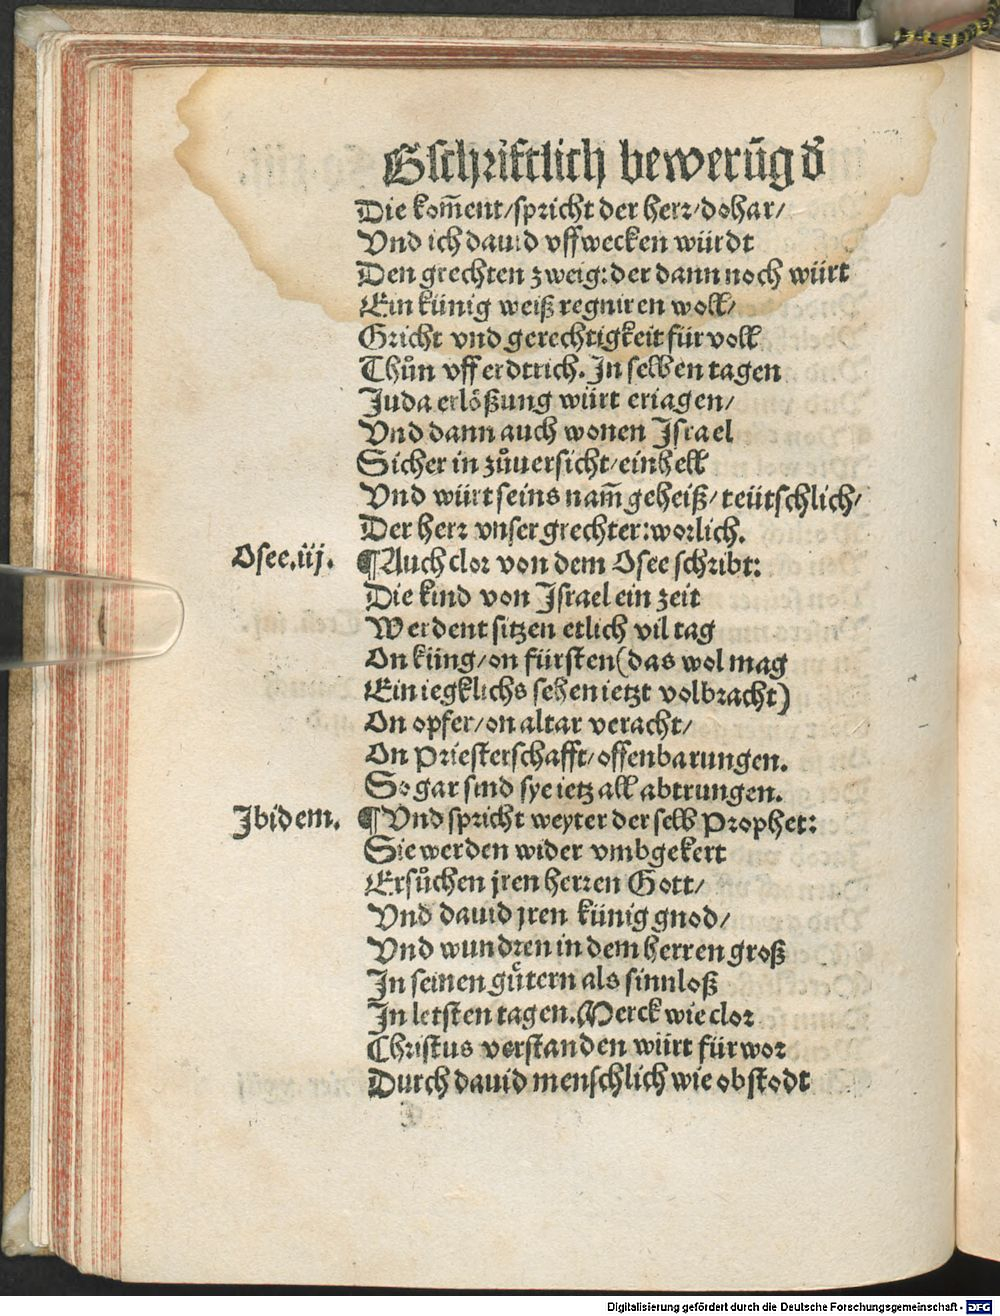 Gschrifftlich bewerūg d̕
Die kom̄ent/spricht der herr/dohar/
Vnd ich dauid vffwecken würdt
Den grechten zweig: der dann noch würt
Ein künig weiß regniren woll/
Gricht vnd gerechtigkeit für voll
Thůn vff erdtrich. In selben tagen
Juda erlößung würt eriagen/
Vnd dann auch wonen Israel
Sicher in zůuersicht/einhell
Vnd würt seins nam̄ geheiß/ teütschlich/
Der herr vnser grechter: worlich.
Osee.iij. ¶Auch clor von dem Osee schribt:
Die kind von Israel ein zeit
Werdent sitzen etlich vil tag
On küng/on fürsten (das wol mag
Ein iegklichs sehen ietzt volbracht)
On opfer/on altar veracht/
On Priesterschafft/offenbarungen.
So gar sind sye ietz all abtrungen.
Ibidem. ¶Vnd spricht weyter der selb Prophet:
Sie werden wider vmbgekert
Ersůchen jren herren Gott/
Vnd dauid jren künig gnod/
Vnd wundren in dem herren groß
In seinen gůtern als sinnloß
In letsten tagen. Merck wie clor
Christus verstanden würt für wor
Durch dauid menschlich wie obstodt
Digitalisierung gefördert durch die Deutsche Forschungsgemeinschaft - DFG